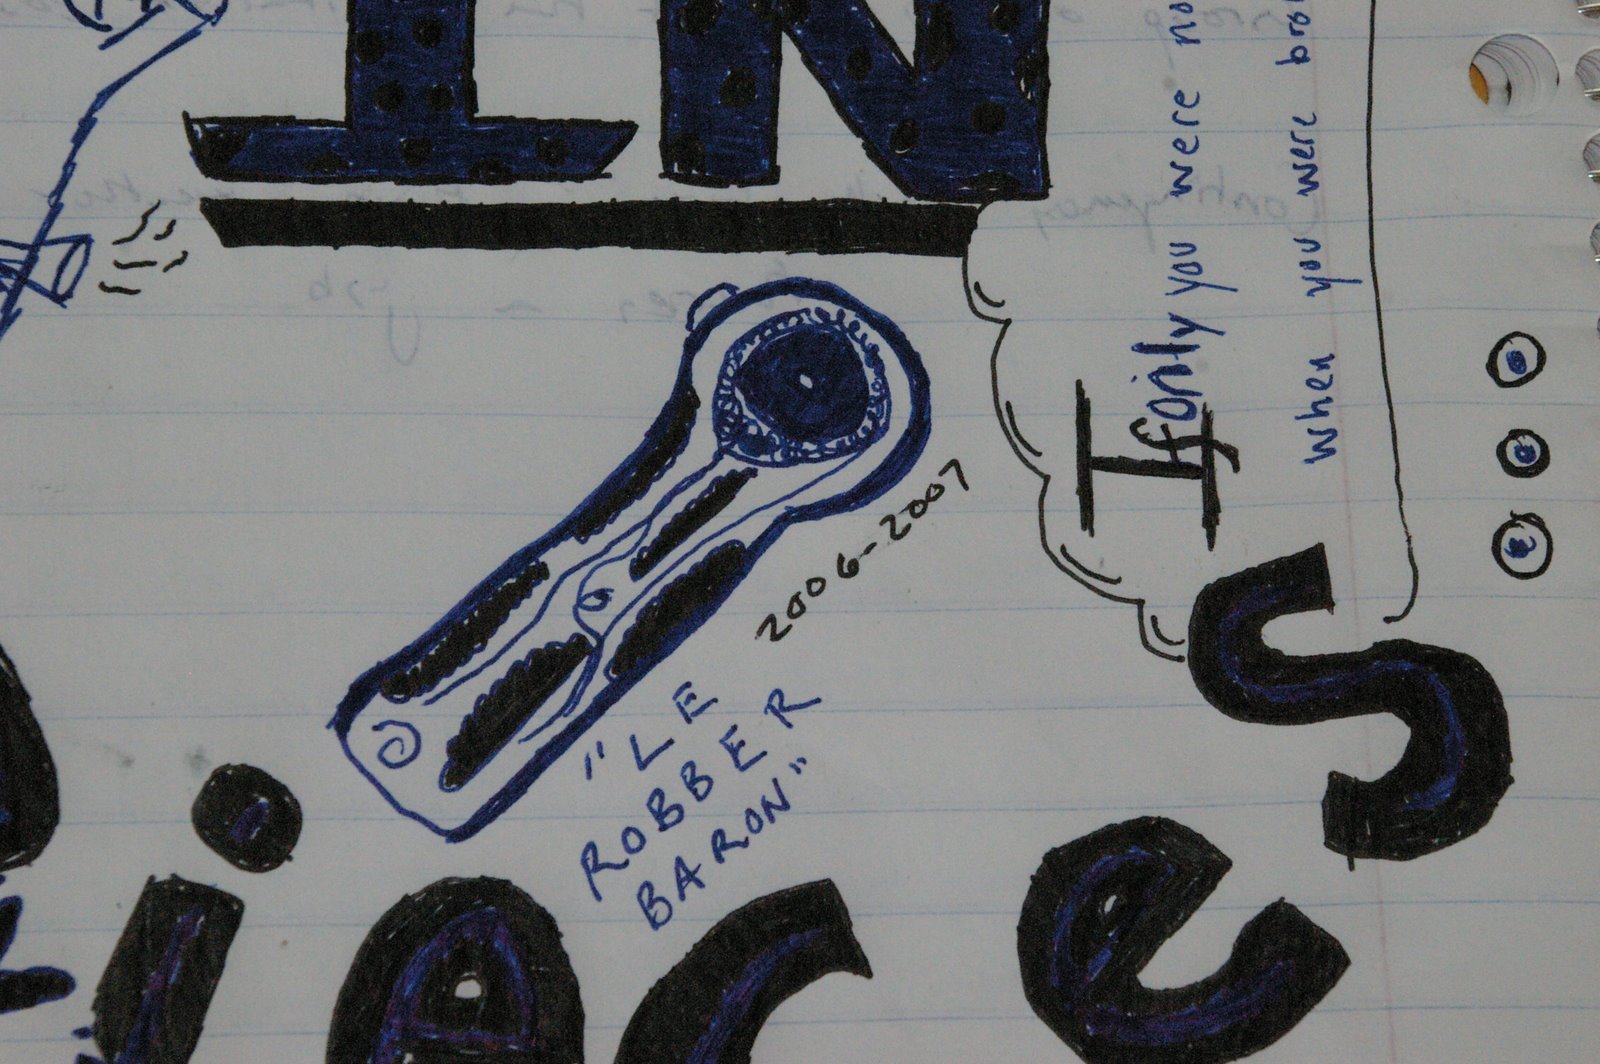 IN
If only you were no
when you were bro
2006-2007
"LE
ROBBER
BARON"
ieces